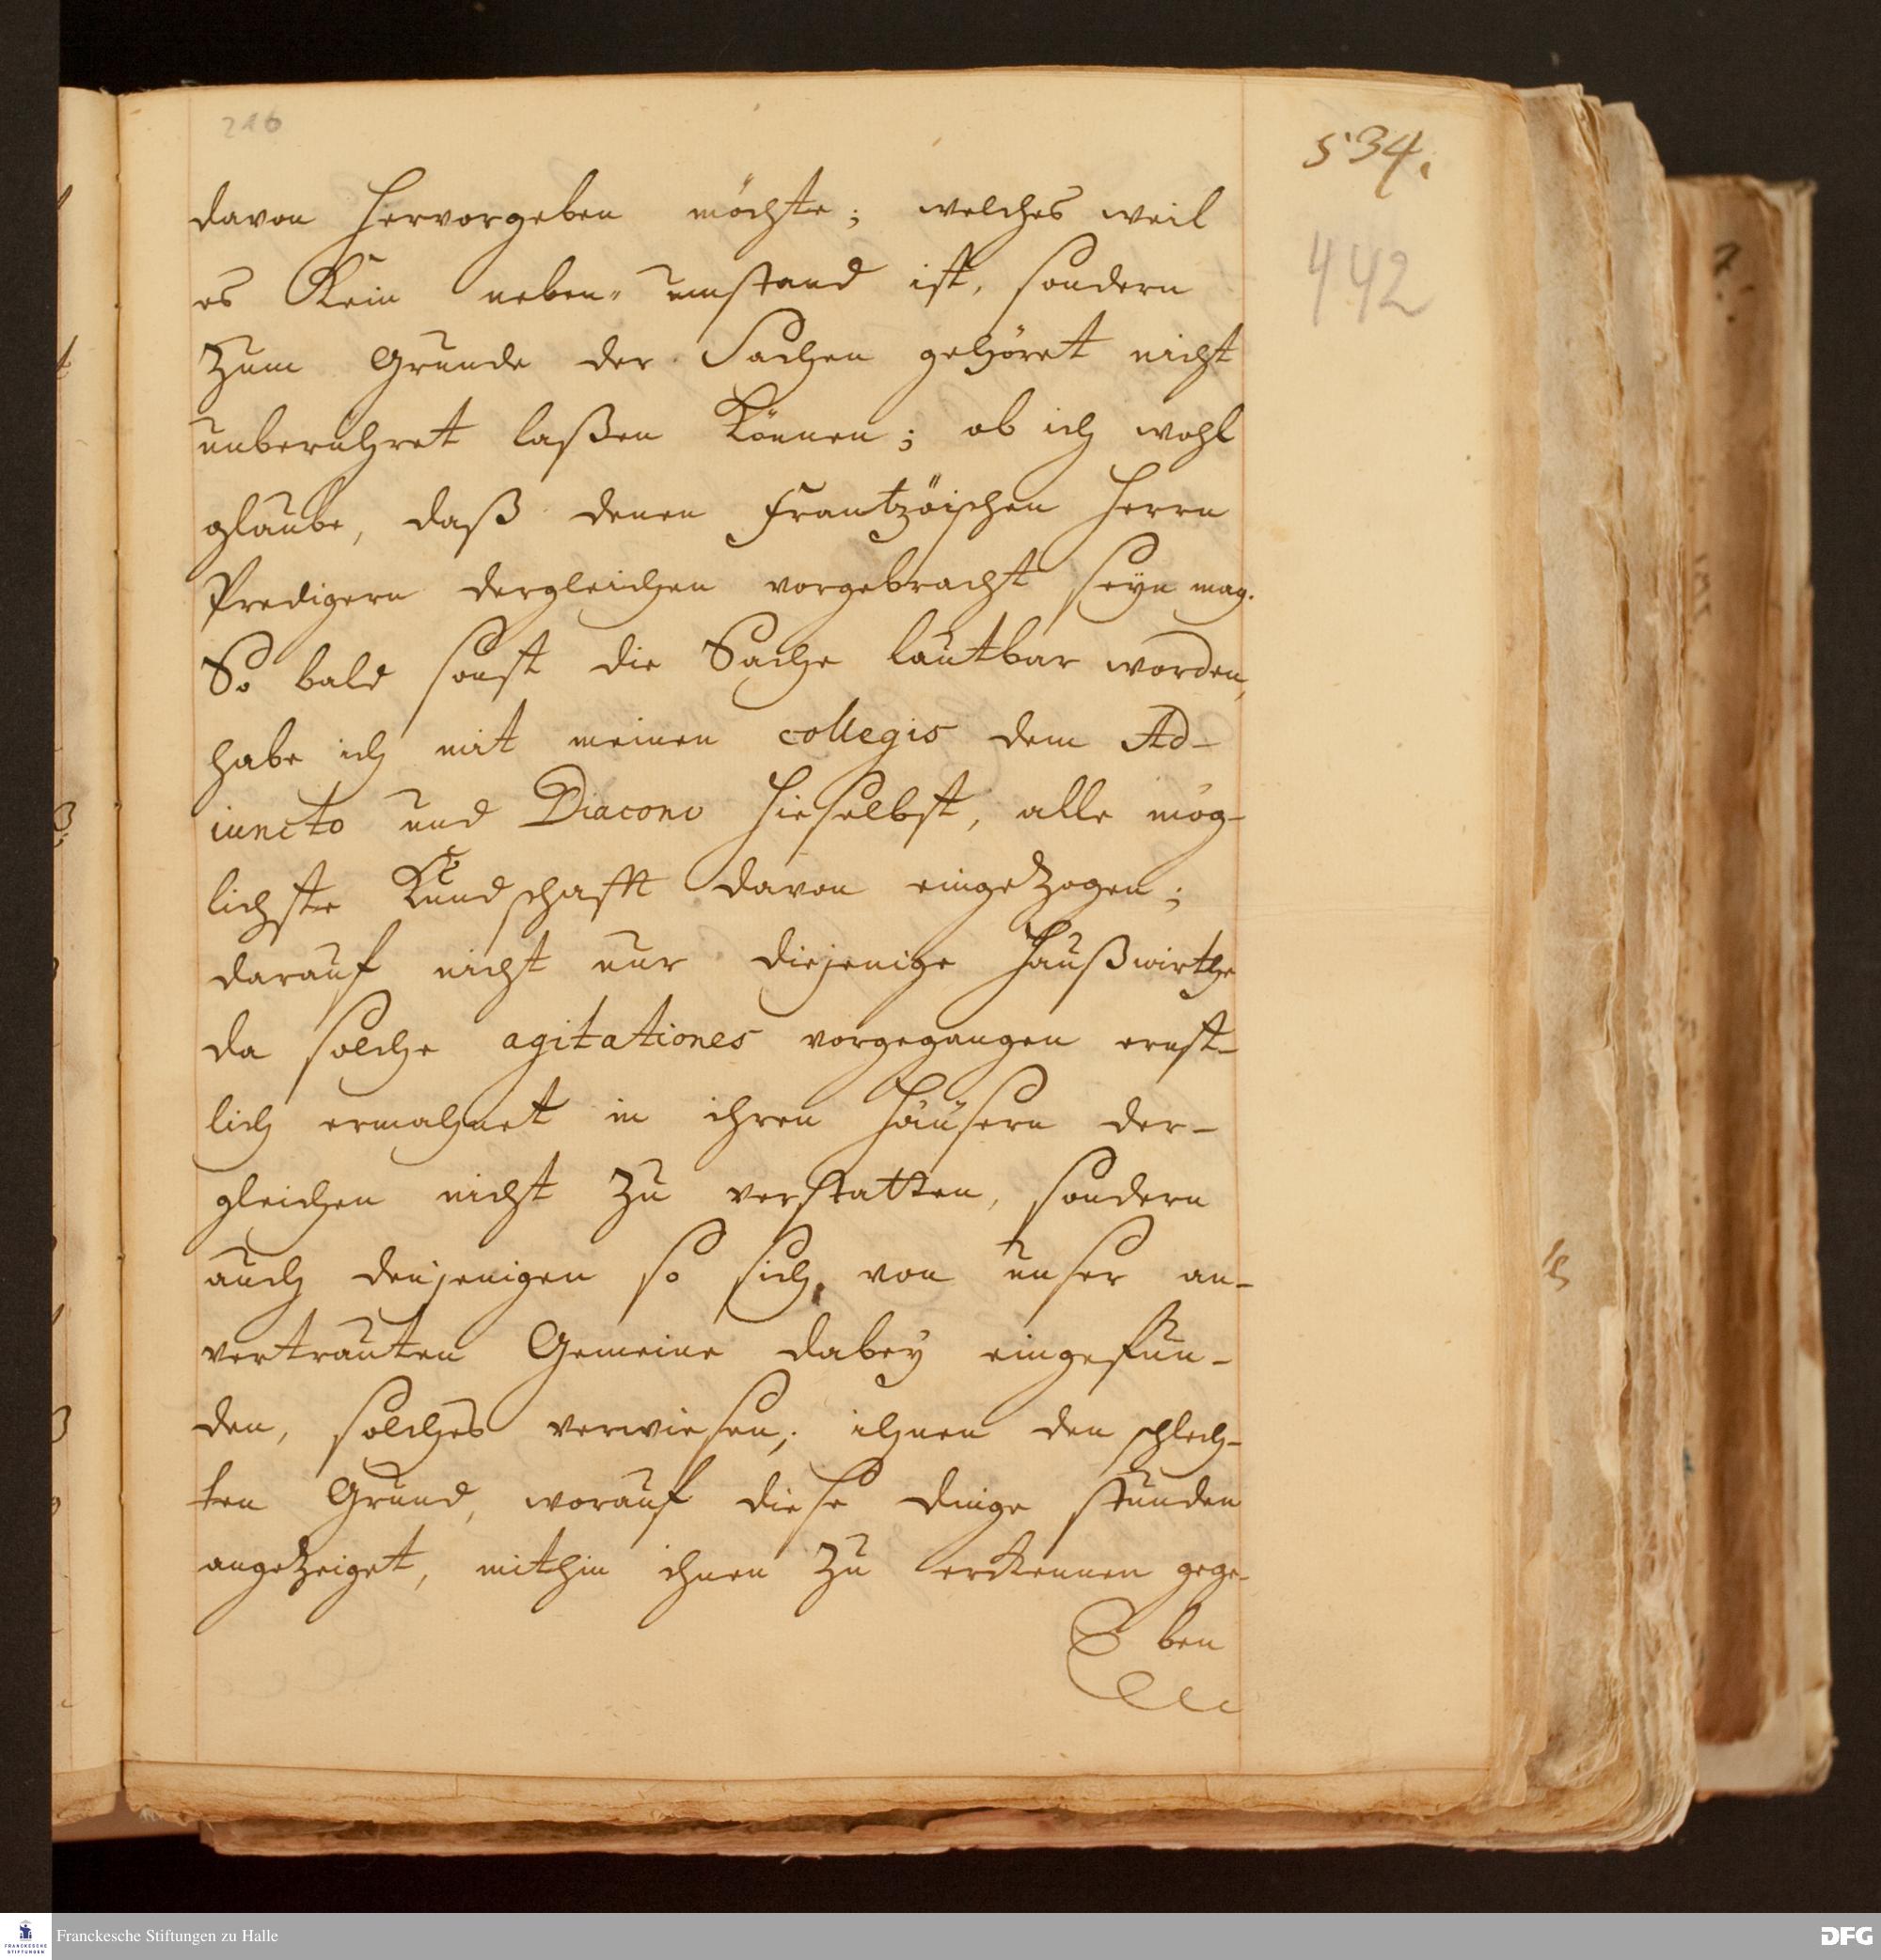 216
534.
442
davon hervorgeben möchte; welches weil
es Kein neben-umstand ist, sondern
zum Grunde der Sachen gehöret nicht
unberühret laßen können; ob ich wohl
glaube, daß denen Frantzöischen Herrn
Predigern dergleichen vorgebracht seyn mag.
So bald sonst die Sache lautbar worden,
habe ich mit meinen collegis dem Ad-
iuncto und Diacono hieselbst, alle mög-
lichste Kundschafft davon eingezogen;
darauf nicht nur diejenige Haußwirthe
da solche agitationes vorgegangen ernst-
lich ermahnet in ihren Häusern der-
gleichen nicht zu verstatten, sondern
auch denjenigen so sich von unser an-
vertrauten Gemeine dabey eingefun-
den, solches verwiesen; ihnen den schlech-
ten Grund, worauf diese dinge stunden
angezeiget, mithin ihnen zu erkennen gege-
ben
Franckesche Stiftungen zu Halle
FRANCKESCHE
STIFTUNGEN
DFG